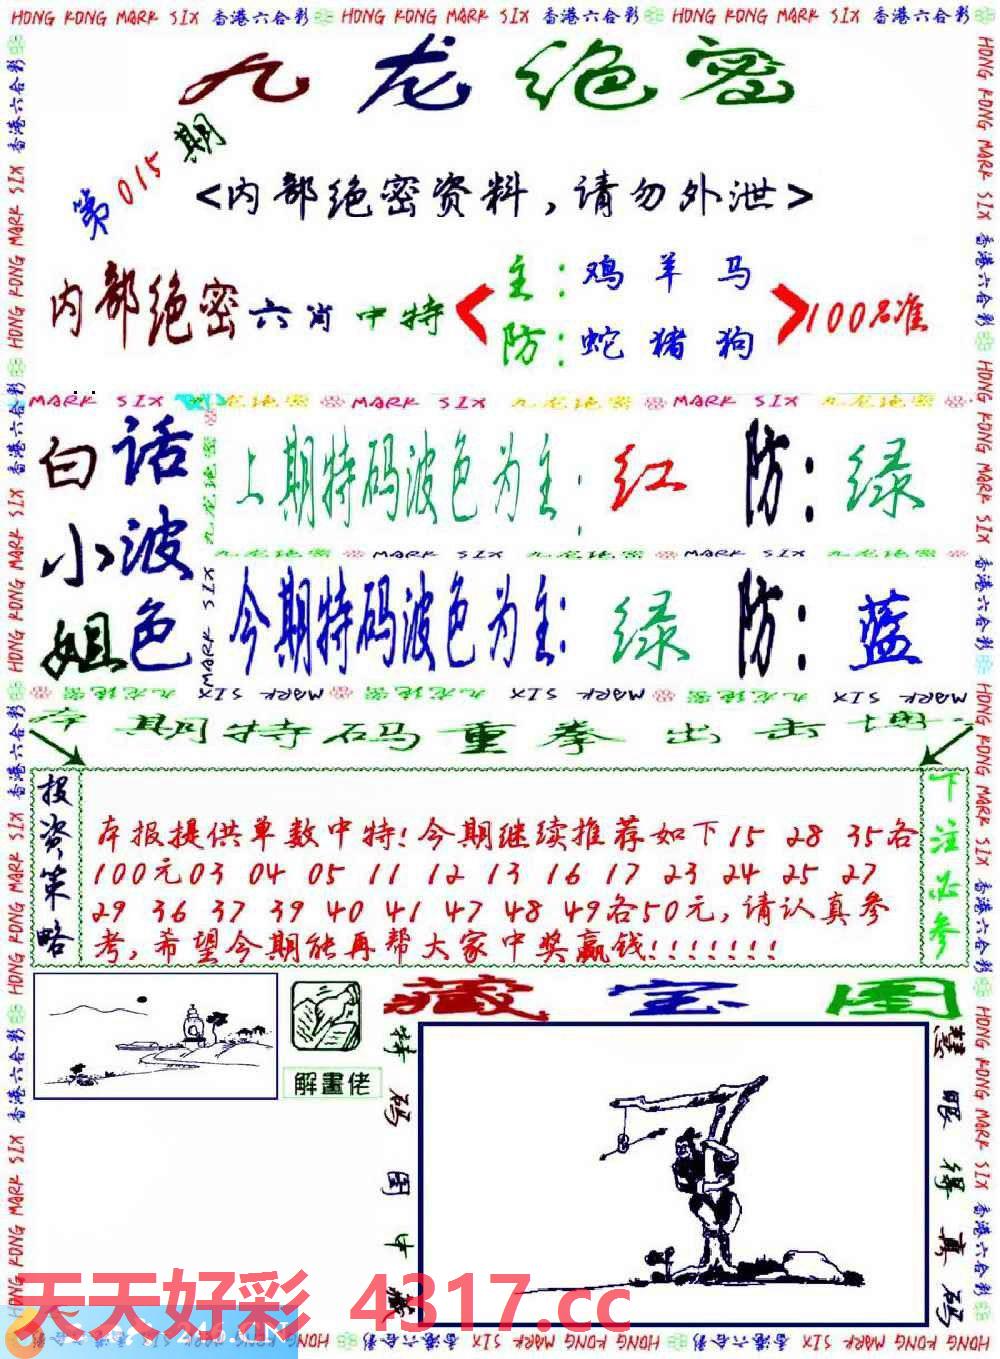 HONG KONG MARK SIX 香港六合彩 HONG KONG MARK SIX 香港六合彩 HONG KONG MARK SIX 香港六合彩
九龙绝密
第015期
<内部绝密资料,请勿外泄>
内部绝密六肖中特
主:鸡羊马
防:蛇猪狗
100%准
MARK SIX 九龙绝密 MARK SIX 九龙绝密 MARK SIX 九龙绝密
白小姐
话波色
上期特码波色为主:红 防:绿
九龙绝密 MARK SIX 九龙绝密 MARK SIX 九龙绝密
今期特码波色为主:绿 防:蓝
本期特码重拳出击
投资策略
本报提供单数中特!今期继续推荐如下15 28 35各
100元03 04 05 11 12 13 16 17 23 24 25 27
29 36 37 39 40 41 47 48 49各50元,请认真参
考,希望今期能再帮大家中奖赢钱!!!!!!!
下注必参
解畫佬
藏宝图
特码图中藏
慧眼得真码
天天好彩 4317.cc